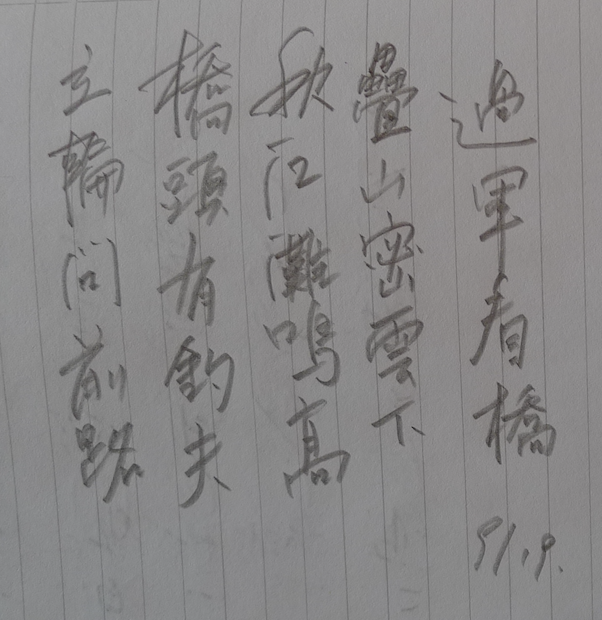 過軍看橋 91.9.
疊山密雲下
秋江灘鳴高
橋頭有釣夫
立輪問前路